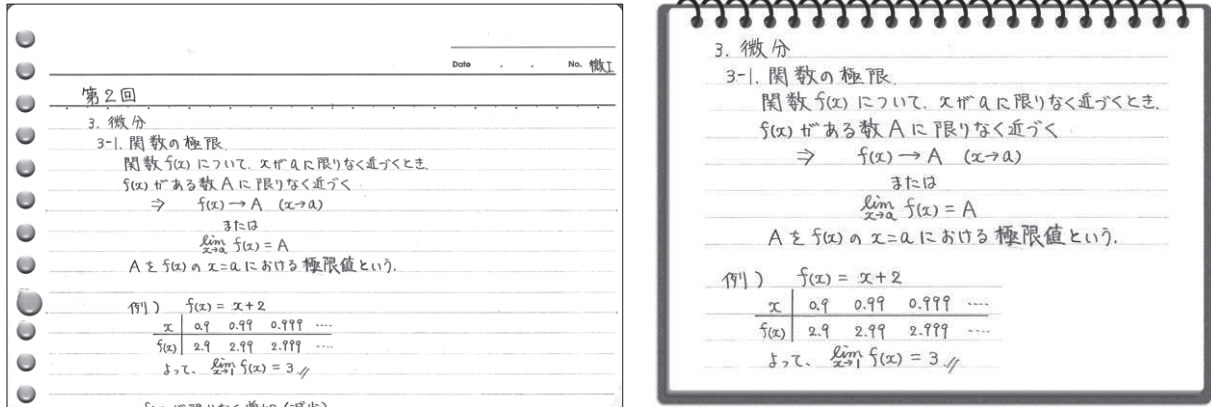 Date . . No. 微I
第2回
3. 微分
3-1. 関数の極限
関数 f(x) について、xがaに限りなく近づくとき、
f(x) がある数Aに限りなく近づく
⇒ f(x) → A (x→a)
または
lim x→a f(x) = A
Aを f(x) の x=a における極限値という.
例) f(x) = x+2
x 0.9 0.99 0.999 ....
f(x) 2.9 2.99 2.999 ....
よって、 lim x→1 f(x) = 3 //
3. 微分
3-1. 関数の極限.
関数 f(x) について、xがaに限りなく近づくとき.
f(x) がある数Aに限りなく近づく
⇒ f(x) → A (x→a)
または
lim x→a f(x) = A
Aを f(x) の x=a における極限値という.
例) f(x) = x+2
x 0.9 0.99 0.999 ....
f(x) 2.9 2.99 2.999 ....
よって、 lim x→1 f(x) = 3 //